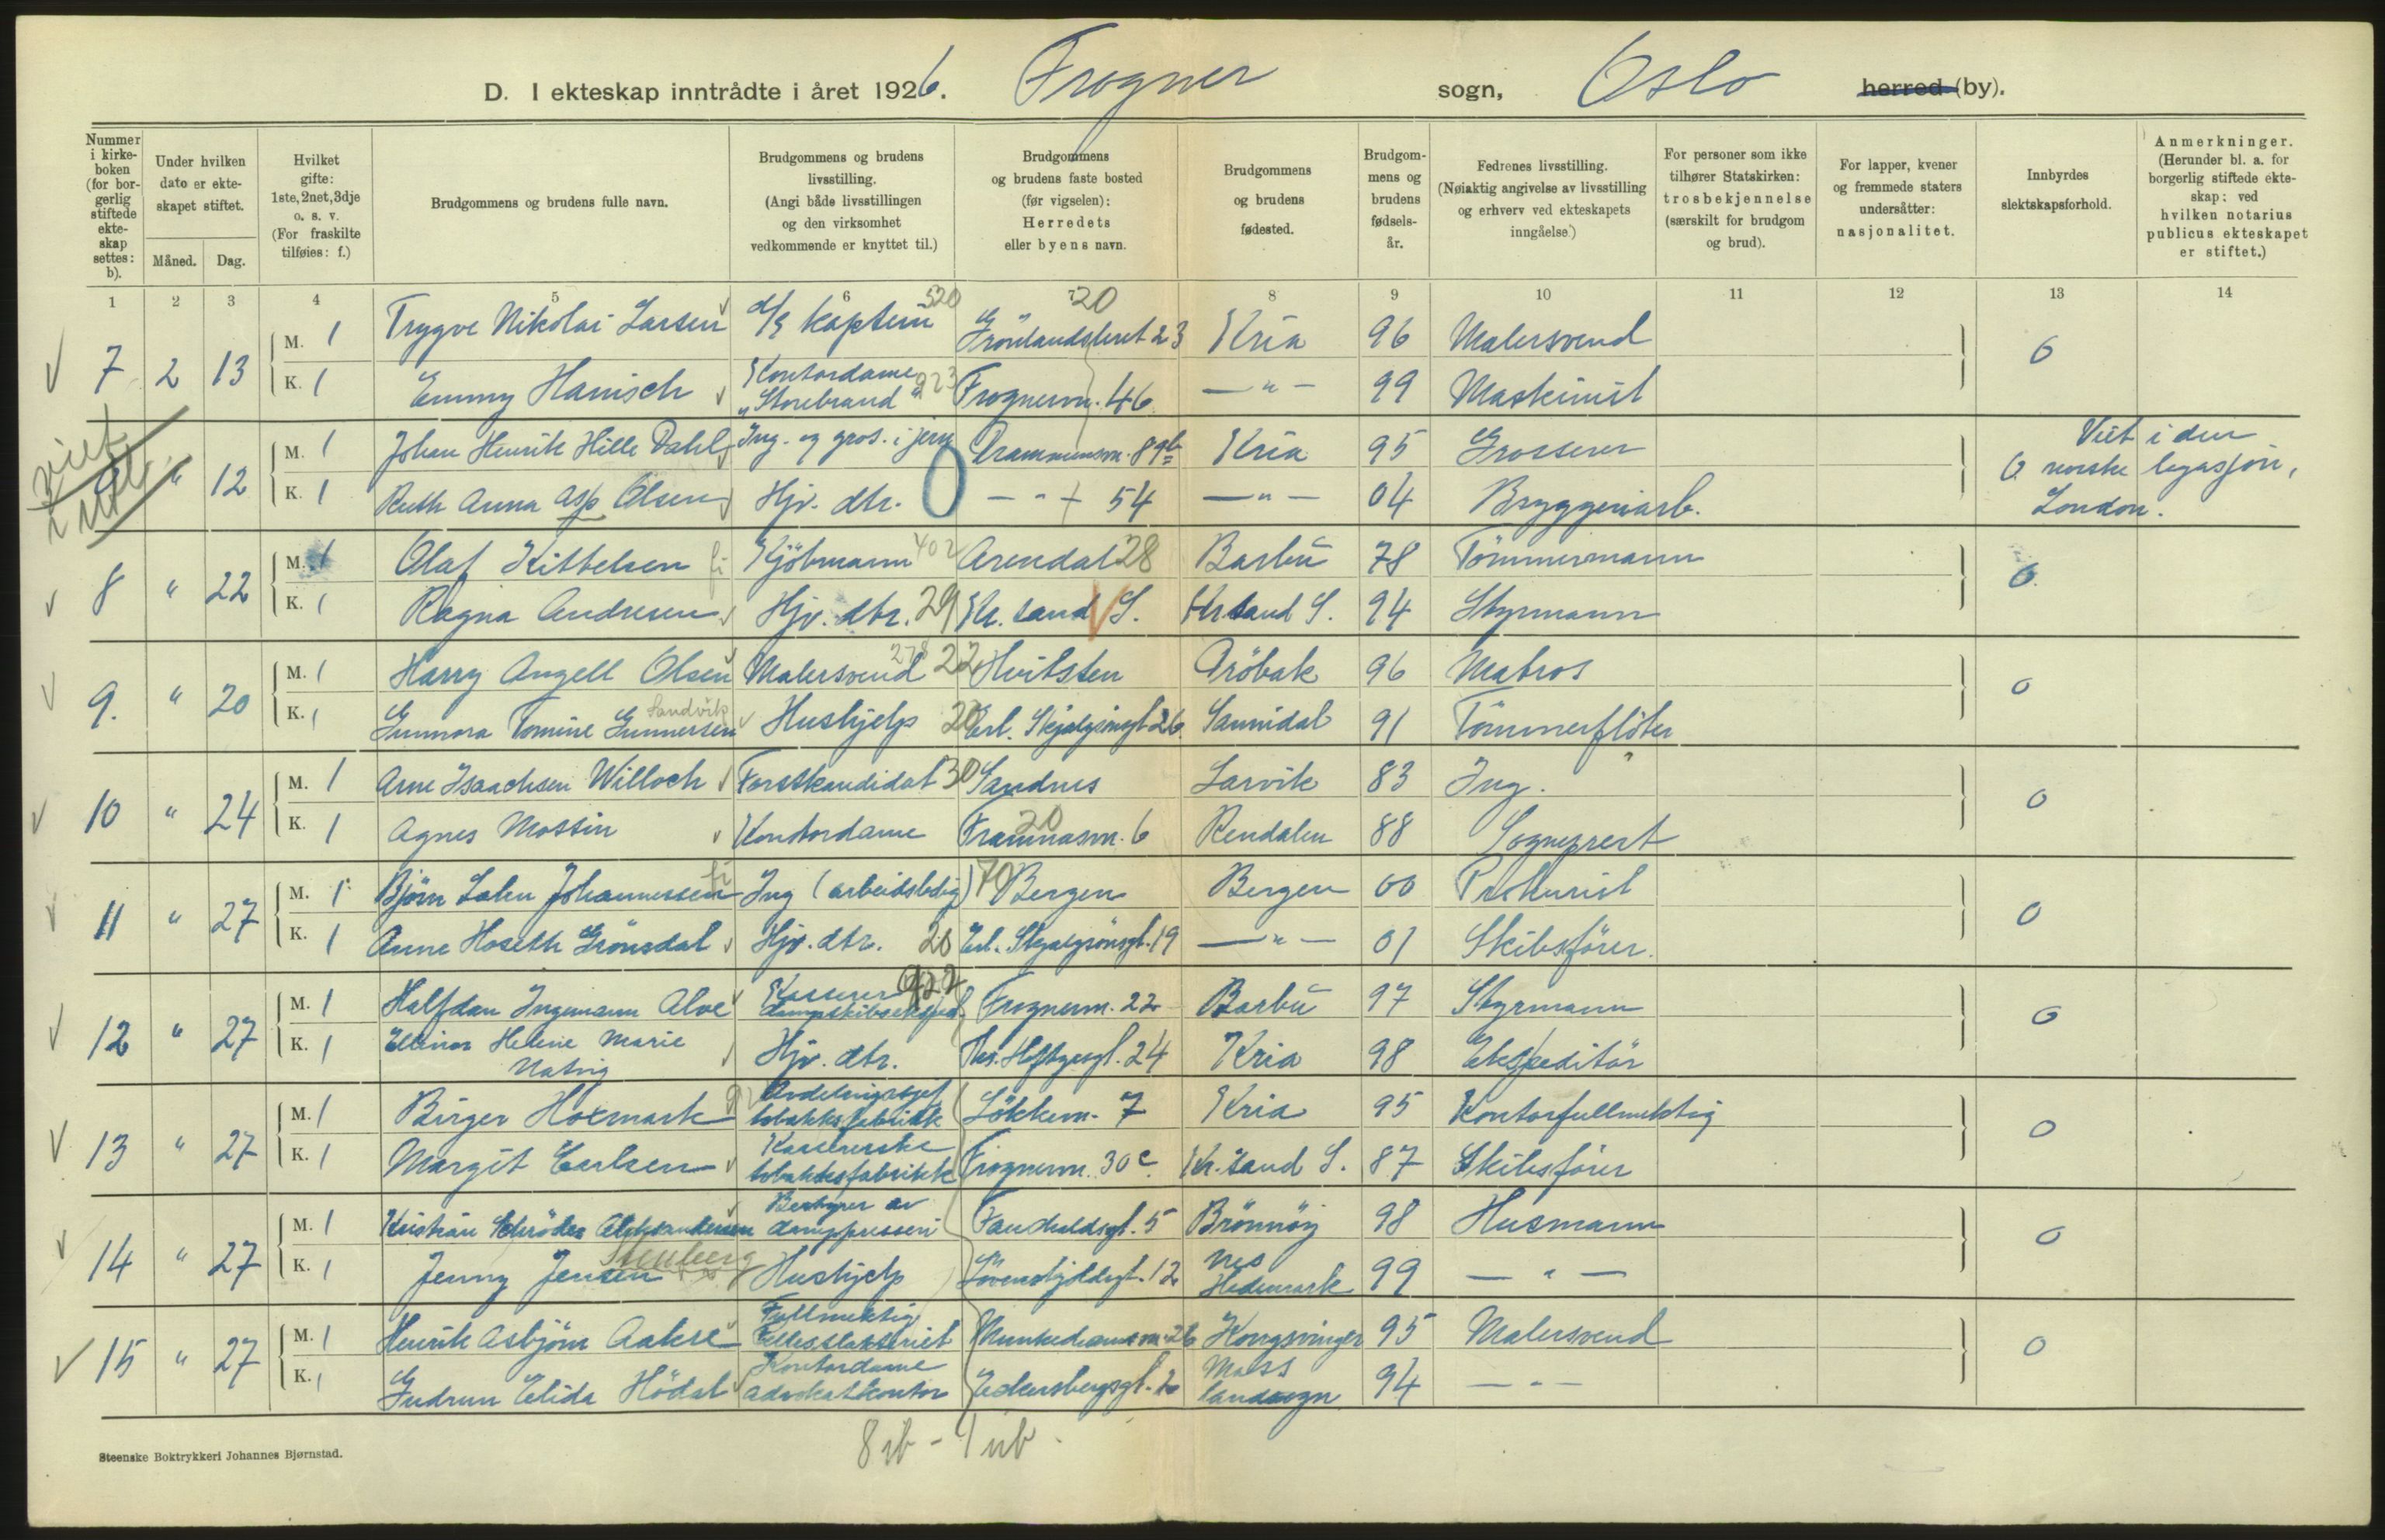 D. I ekteskap inntrådte i året 1926. Frogner sogn, Oslo herred (by).
Nummer i kirkeboken (for borgerlig stiftede ekteskap settes: b).
Under hvilken dato er ekteskapet stiftet.
Måned. Dag.
Hvilket gifte: 1ste, 2net, 3dje o. s. v. (For fraskilte tilføies: f.)
Brudgommens og brudens fulle navn.
Brudgommens og brudens livsstilling. (Angi både livsstillingen og den virksomhet vedkommende er knyttet til.)
Brudgommens og brudens faste bosted (før vigselen): Herredets eller byens navn.
Brudgommens og brudens fødested.
Brudgommens og brudens fødselsår.
Fedrenes livsstilling. (Nøiaktig angivelse av livsstilling og erhverv ved ekteskapets inngåelse.)
For personer som ikke tilhører Statskirken: trosbekjennelse (særskilt for brudgom og brud).
For lapper, kvener og fremmede staters undersåtter: nasjonalitet.
Innbyrdes slektskapsforhold.
Anmerkninger. (Herunder bl. a. for borgerlig stiftede ekteskap: ved hvilken notarius publicus ekteskapet er stiftet.)
1 2 3 4 5 6 7 8 9 10 11 12 13 14
520 20
7 2 13 M. 1 Trygve Nikolai Larsen d/s kaptein Grönlandsleret 23 Kria 96 Malersvend 0
K. 1 Emmy Hanisch Kontordame „Storebrand" 923 Frognerv. 46 — " — 99 Maskinist
" 12 M. 1 Johan Henrik Hille Dahl Ing. og gros. i jern Drammensv. 89b Kria 95 Grosserer 0 Viet i den norske legasjon, London.
K. 1 Ruth Anna Asp Olsen Hjv. dtr. 0 — " — 54 — " — 04 Bryggeriarb.
8 " 22 M. 1 Olaf Kittelsen Kjöbmann 402 Arendal 28 Barbu 78 Tömmermann 0
K. 1 Ragna Andresen Hjv. dtr. 29 Kr. sand S. Kr. sand S. 94 Styrmann
9. " 20 M. 1 Harry Angell Olsen Malersvend 278 22 Hvitsten Dröbak 96 Matros 0
K. 1 Gunnora Tomine Gunnersen Sandvik Hushjelp 20 Erl. Skjalgsönsgt 26 Sannidal 91 Tömmerflöter
10 " 24 M. 1 Arne Isaachsen Willoch Forstkandidat 30 Sandnes Larvik 83 Ing. 0
K. 1 Agnes Mossin Kontordame 20 Framnasv. 6 Rendalen 88 Sogneprest
11 " 27 M. 1 Björn Lalen Johannessen Ing (arbeidsledig) 70 Bergen Bergen 00 Prokurist 0
K. 1 Anne Hoseth Grönsdal Hjv. dtr. 20 Erl. Skjalgsönsgt. 19 — " — 01 Skibsförer.
12 " 27 M. 1 Halfdan Ingemann Alve Kasserer 922 Frognerv. 22 Barbu 97 Styrmann 0
K. 1 Ellinor Helene Marie Natvig Hjv. dtr. Ths. Heftyesgt. 24 Kria 98 Ekspeditör
13 " 27 M. 1 Birger Hoxmark Avdelingssjef tobakksfabrikk Lökkev. 7 Kria 95 Kontorfullmektig 0
K. 1 Margit Carlsen Kassererske tobakksfabrikk Frognerv. 30c Kr. sand S. 87 Skibsförer
14 " 27 M. 1 Kristian Schröder Aleksandersen Bestyrer av damppresseri Fauchaldsgt. 5 Brönnöy 98 Husmann 0
K. 1 Jenny Jensen Stenberg Hushjelp Lövenskjoldsgt. 12 Nes Hedemark 99 — " —
15 " 27 M. 1 Henrik Asbjörn Aakre Fullmektig Fellesslakteriet Munkedamsv. 26 Kongsvinger 95 Malersvend 0
K. 1 Gudrun Elida Hödal Kontordame advokatkontor Eckersbergsgt. 20 Moss landsogn 94 — " —
8 ib - 1 ub.
Steenske Boktrykkeri Johannes Bjørnstad.